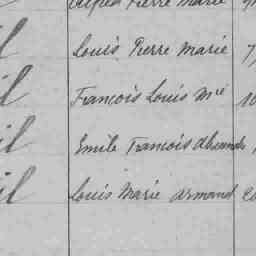 Pierre Marie
Louis Pierre Marie 7
François Louis Mie 10
Emile François
Louis Marie Armand